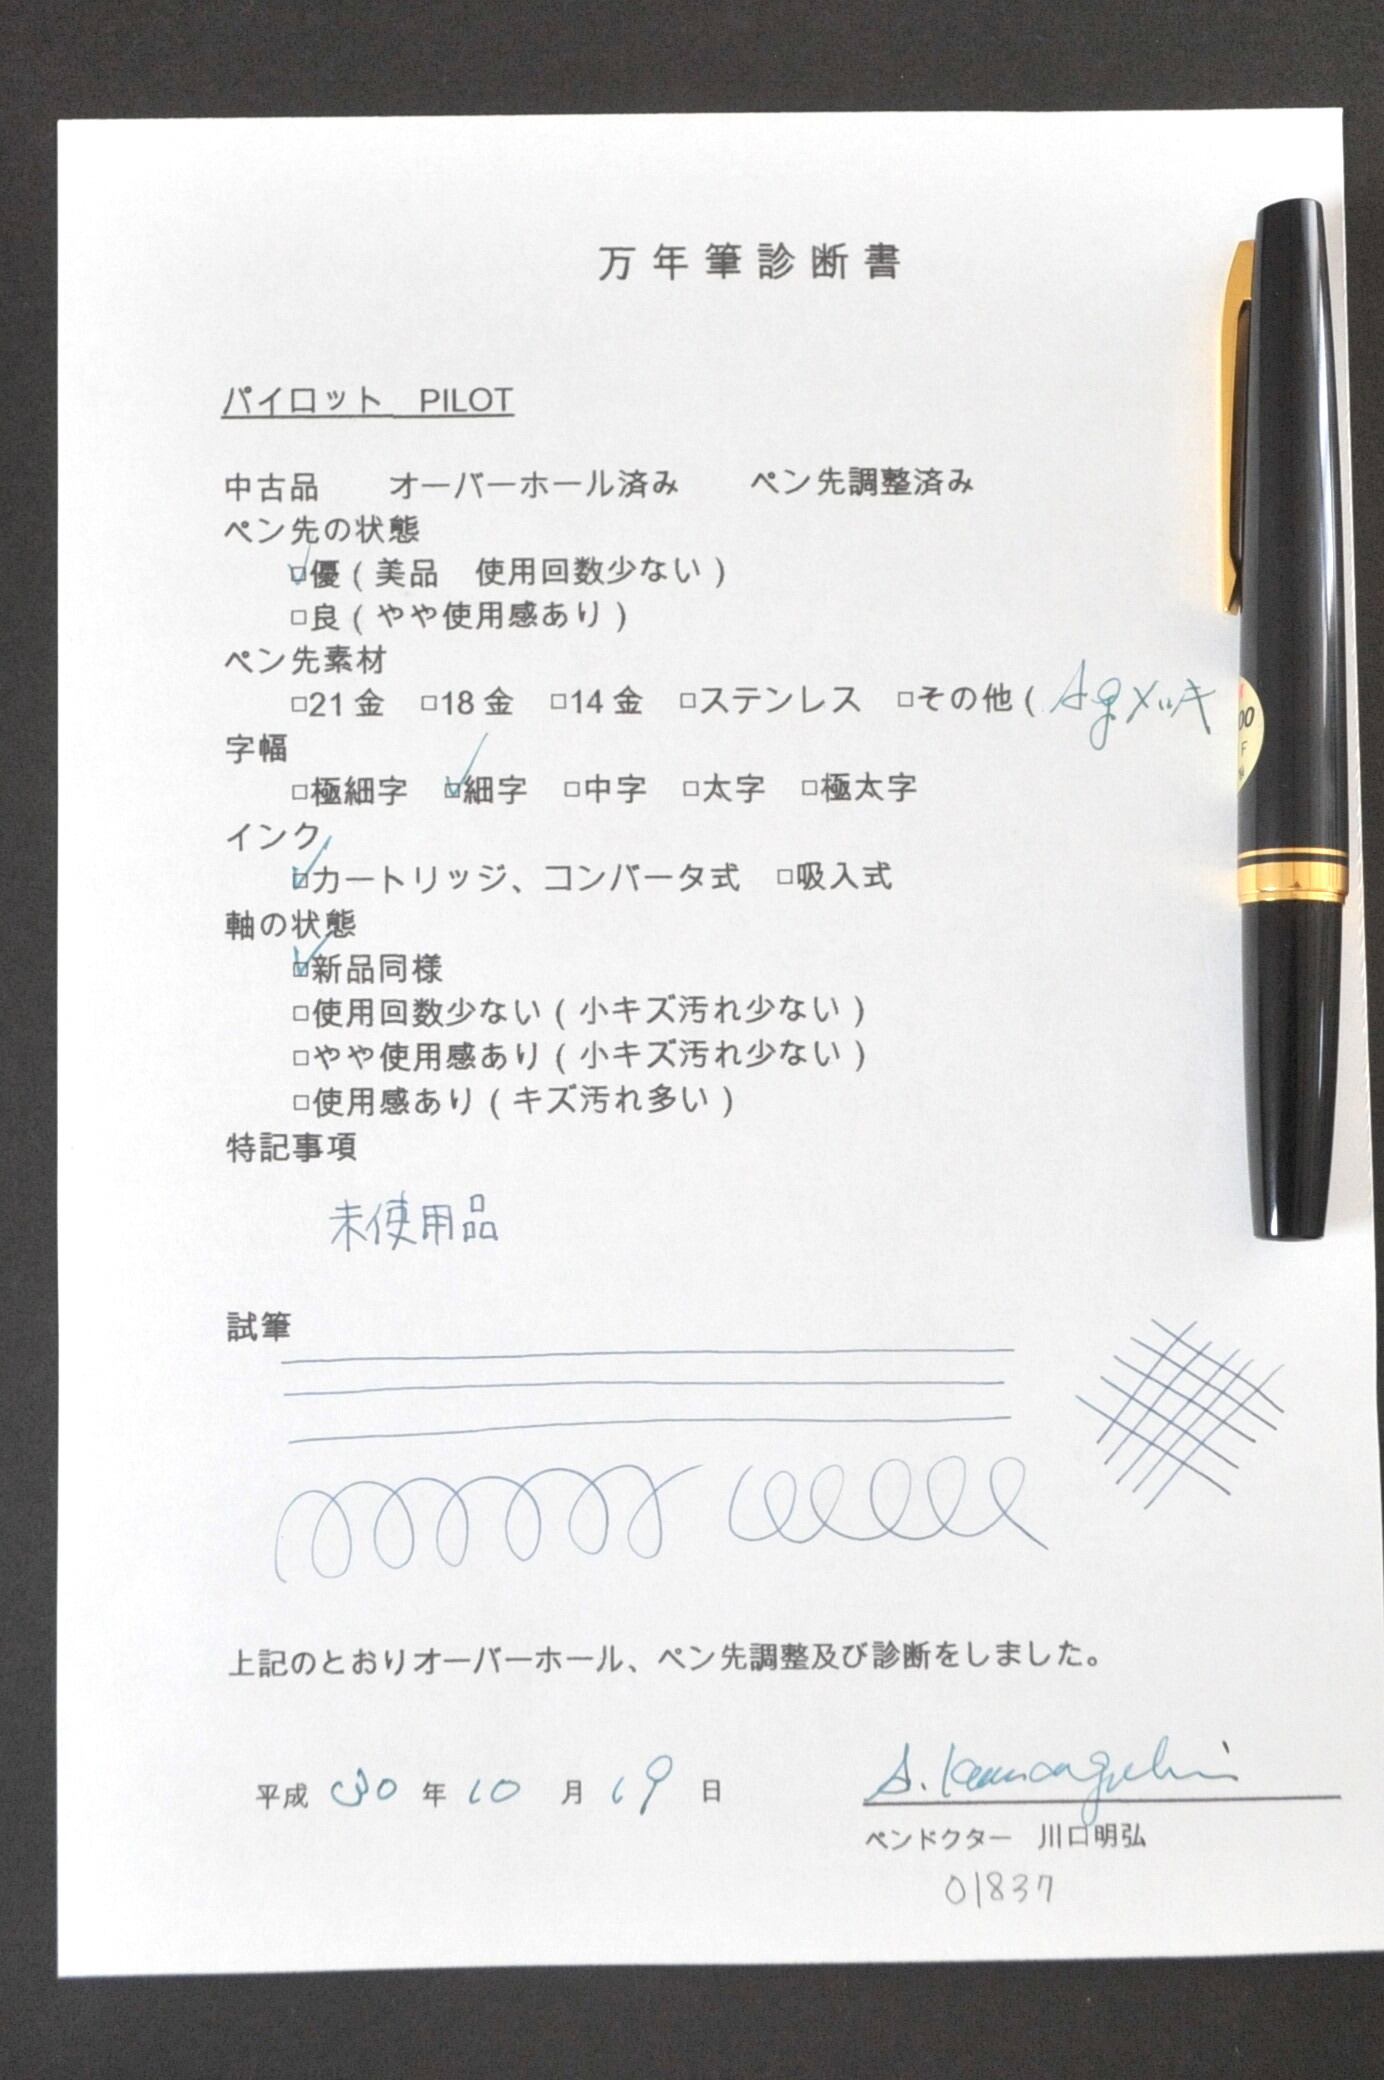 万年筆診断書
パイロット　PILOT
中古品　　オーバーホール済み　　ペン先調整済み
ペン先の状態
☑優（美品　使用回数少ない）
□良（やや使用感あり）
ペン先素材
□21金　□18金　□14金　□ステンレス　□その他（ Agメッキ
字幅
□極細字　☑細字　□中字　□太字　□極太字
インク
☑カートリッジ、コンバータ式　□吸入式
軸の状態
☑新品同様
□使用回数少ない（小キズ汚れ少ない）
□やや使用感あり（小キズ汚れ少ない）
□使用感あり（キズ汚れ多い）
特記事項
未使用品
試筆
上記のとおりオーバーホール、ペン先調整及び診断をしました。
平成 30 年 10 月 19 日
A. Kawaguchi
ペンドクター　川口明弘
01837
00
F